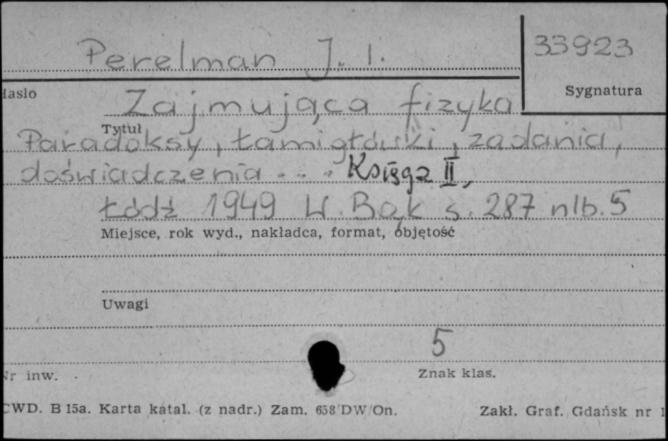 Perelman J. I.
33923
Hasło
Sygnatura
Zajmująca fizyka
Tytuł
Paradoksy, łamigłówki, zadania,
doświadczenia . . . Księga II,
Łódź 1949 W. Bąk s. 287 nlb. 5
Miejsce, rok wyd., nakładca, format, objętość
Uwagi
5
Nr inw.
Znak klas.
CWD. B 15a. Karta katal. (z nadr.) Zam. 658/DW/On.
Zakł. Graf. Gdańsk nr 1